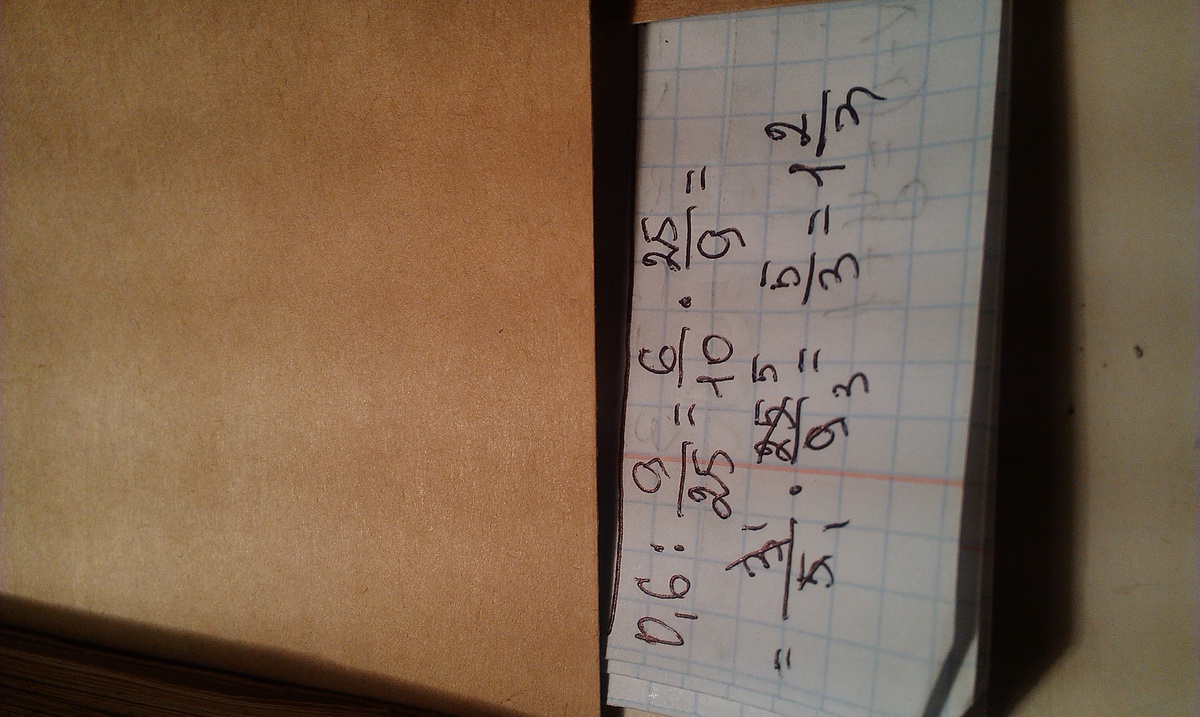 0,6 : 9/25 = 6/10 · 25/9 =
= 3 1/5 1 · 25 5/9 3 = 5/3 = 1 2/3